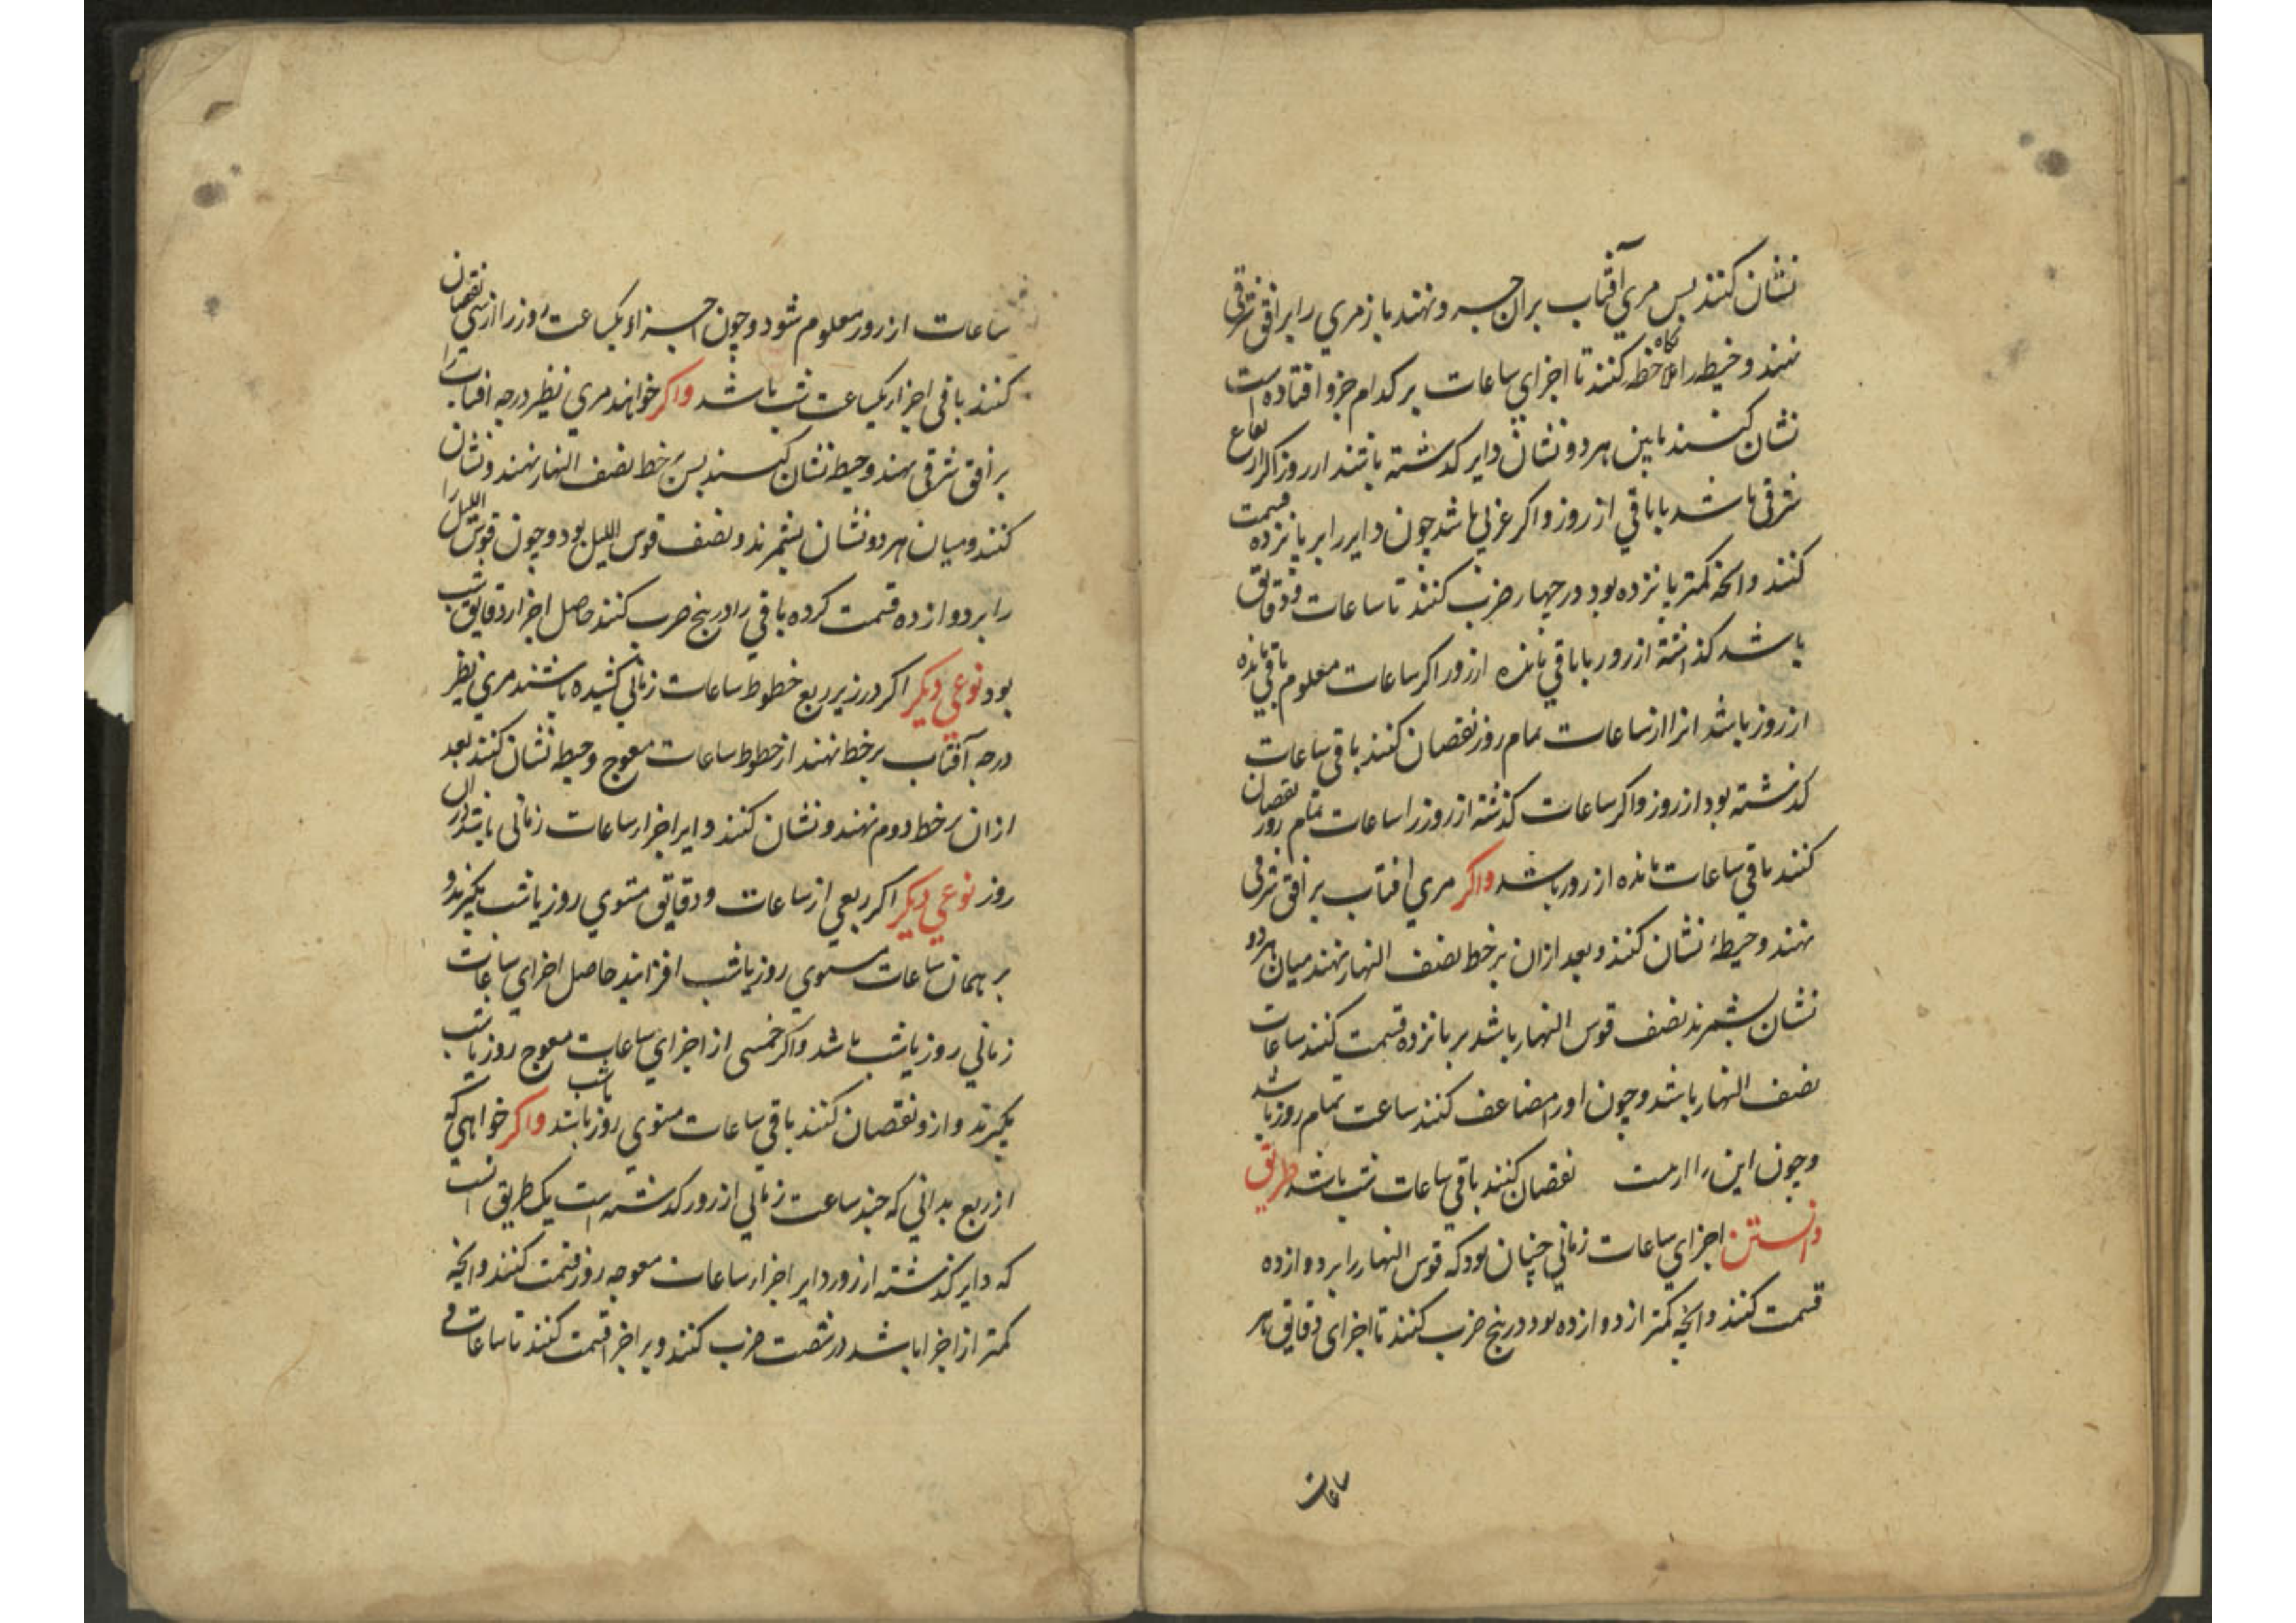 نشان کنند پس مری آفتاب بران جزو نهند باز مری را بر افق شرقی
نهند و خیط را ملاحظه کنند تا اجزای ساعات بر کدام جزو افتاده است
نشان کنند مابین هر دو نشان دایر کدشته باشد از روز اکر ارتفاع
شرقی باشد یا باقی از روز و اکر غربی باشد چون دایر را بر پانزده قسمت
کنند و انچه کمتر پانزده بود در چهار ضرب کنند تا ساعات و دقایق
باشد کذاشته از روز یا باقی مانده از روز اکر ساعات معلوم باقی مانده
از روز باشد انرا از ساعات تمام روز نقصان کنند باقی ساعات
کذشته بود از روز و اکر ساعات کذشته از روز را ساعات تمام روز نقصان
کنند باقی ساعات مانده از روز باشد واکر مری افتاب بر افق شرقی
نهند و خیطه نشان کنند و بعد ازان بر خط نصف النهار نهند میان هر دو
نشان بشمرند نصف قوس النهار باشد بر پانزده قسمت کنند ساعات
نصف النهار باشد و چون او را مضاعف کنند ساعت تمام روز باشد
و چون این را از نقصان کنند باقی ساعات شب باشد طریق
دانستن اجزای ساعات زمانی چنان بود که قوس النهار را بر دوازده
قسمت کنند و انچه کمتر از دوازده بود در پنج ضرب کنند تا اجزای دقایق هر
ساعات
ساعات از روز معلوم شود و چون اجزاو یکساعت روز را از سی نقصان
کنند باقی اجزا یکساعت شب باشد واکر خواهند مری نظیر درجه افتاب را
بر افق شرقی نهند و خیط نشان کنند پس بر خط نصف النهار نهند و نشان
کنند و میان هر دو نشان بشمرند و نصف قوس اللیل بود و چون قوس اللیل را
را بر دوازده قسمت کرده باقی را در پنج ضرب کنند حاصل اجزا و دقایق شب
بود نوعی دیکر اکر در زیر ربع خطوط ساعات زمانی کشیده باشند مری نظیر
درجه آفتاب بر خط نهند از خطوط ساعات معوج و خیط نشان کنند بعد
ازان بر خط دوم نهند و نشان کنند دایر اجزا ساعات زمانی باشد دران
روز نوعی دیکر اکر ربعی از ساعات و دقایق مستوی روز یا شب بکیرند و
بر همان ساعات مستوی روز یا شب افزایند حاصل اجزای ساعات
زمانی روز یا شب باشد و اکر خمسی از اجزای ساعات معوج روز یا شب
بکیرند و ازو نقصان کنند باقی ساعات مستوی روز یا شب باشد واکر خواهی که
از ربع بدانی که چند ساعت زمانی از روز کدشته است یک طریق انست
که دایر کذشته از روز دایر اجزا ساعات معوجه روز قسمت کنند و انچه
کمتر از اجزا باشد در شصت ضرب کنند و بر اجزا قسمت کنند تا ساعات و